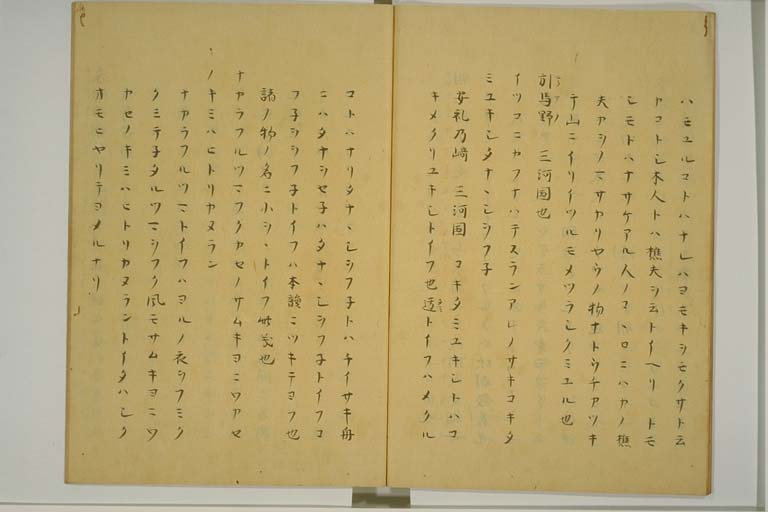 ハモユルコトハナレハヨモキシモクサト云
ヤコトシ木人トハ樵夫シ云トイヘリコトモ
シモトハナサケアル人ノコヽロニハカノ樵
夫アシノマサカリヤウノ物ナトウチアツキ
テ山ニイリイツルモメツラシクミユル也
引馬野 三河国也
イツコニカフナハテスランアレノサキコキタ
ミユキシタナヽシシフ子
安礼乃﨑 三河国 コキタミユキシトハコ
キメクリユキシトイフ也 トイフハメクル
コトハナリタナヽシシフ子トハチイサキ舟
ニハタナヤセ子ハタナヽシシフ子トイフコ
フ子シシフ子トイフハ本韻ニツキテヨフ也
諸ノ物ノ名ニ小シヽトイフ此義也
ナカラフルツマフクカセノサムキヨニワカセ
ノキミハヒトリカヌラン
ナカラフルツマトイフハヨルノ衣シフミク
クミテ子タルツマシフク風モサムキヨニワ
カセノキミハヒトリカヌラントイタハシク
オモヒヤリテヨメルナリ